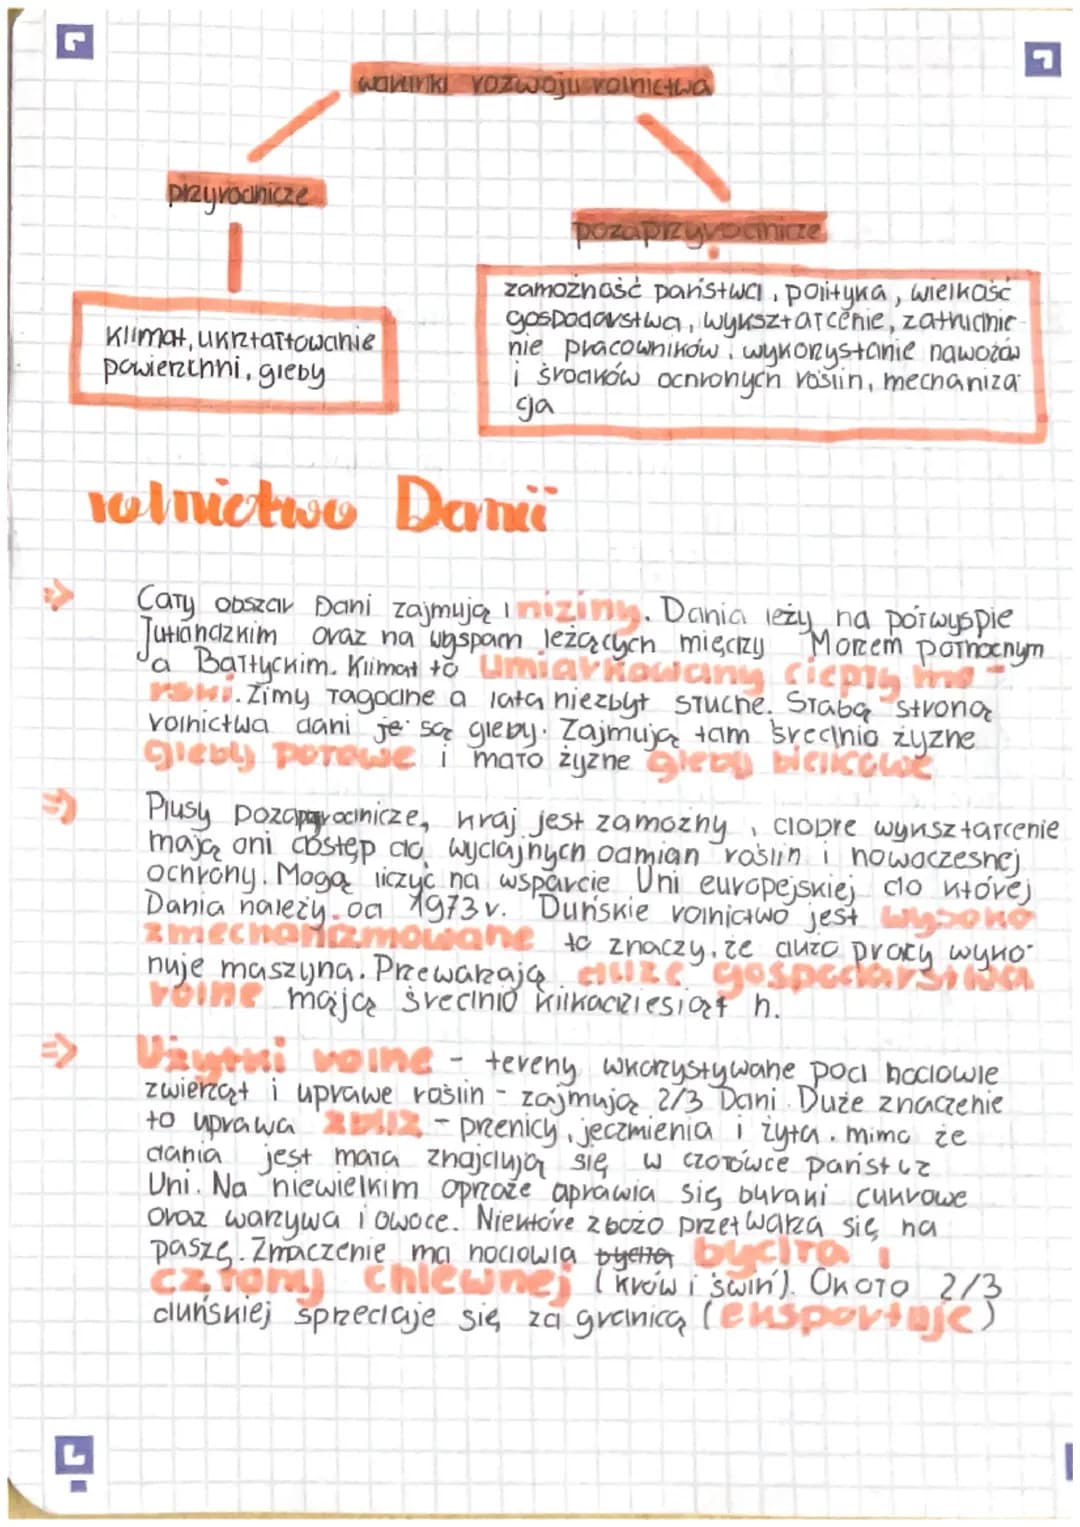 warunki rozwoju rolnictwa
przyrodnicze
pozaprzyrodnicze
klimat, ukrztałtowanie
powierzchni, gleby
zamożność państwa, polityka, wielkość
gospodarstwa, wykształcenie, zatrudnie-
nie pracowników, wykorzystanie nawozów
i środków ochronych roślin, mechaniza
cja
rolnictwo Danii
Cały obszar Dani zajmują niziny. Dania leży na półwyspie
Jutlandzkim oraz na wyspam leżących między Morzem północnym
a Bałtyckim. Klimat to umiarkowany ciepły mo-
rski. Zimy łagodne a lata niezbyt słuche. Słabą stroną
rolnictwa dani je są gleby. Zajmują tam średnio żyzne
gleby płowe i mało żyzne gleby bielicowe
Plusy pozaprzyrodnicze, kraj jest zamożny, dobre wyksztarcenie
mają oni dostęp do wydajnych odmian roślin i nowoczesnej
ochrony. Mogą liczyć na wsparcie Uni europejskiej do której
Dania należy od 1973 r. Duńskie rolnictwo jest wysoko
zmechanizmowane to znaczy, że dużo pracy wyko-
nuje maszyna. Przeważają duże gospodarstwa
rolne mają średnio kilkadziesiąt h.
Użytki rolne - tereny wkorzystywane pod hodowle
zwierząt i uprawe roślin - zajmują 2/3 Dani. Duże znaczenie
to uprawa zbóż - przenicy, jeczmienia i żyta. mimo że
dania jest mała znajdują się w czołówce państ z
Uni. Na niewielkim oprzaże aprawia się buraki cukrowe
oraz warzywa i owoce. Niektóre zbożo przetwarza się na
paszę. Zmaczenie ma hodowla bydła bydła i
czrony chlewnej (krów i świń). Około 2/3
duńskiej sprzedaje się za granicą (eksportuje)